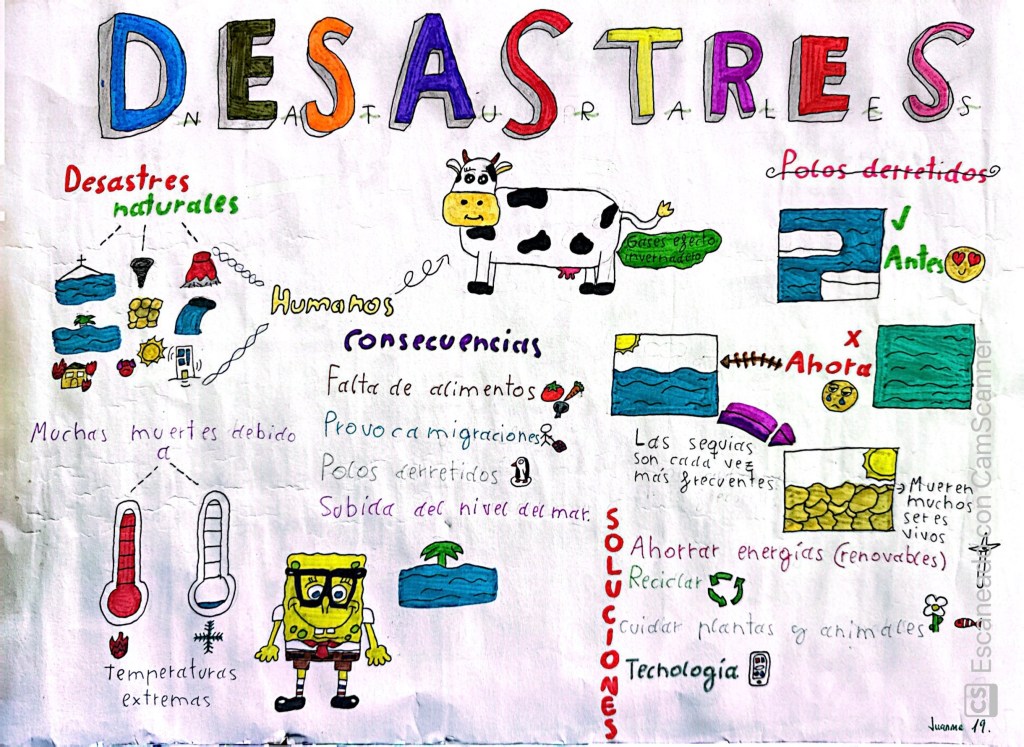 DESASTRES
NATURALES
Desastres
naturales
Humanos
Gases efecto
invernadero
Polos derretidos
Antes
Ahora
Consecuencias
Falta de alimentos
Provoca migraciones
Polos derretidos
Subida del nivel del mar.
Muchas muertes debido
a
Temperaturas
extremas
Las sequias
son cada vez
más frecuentes
Mueren
muchos
seres
vivos
SOLUCIONES
Ahorrar energías (renovables)
Reciclar
Cuidar plantas y animales
Tecnología
Juanma 19.
CS Escaneado con CamScanner